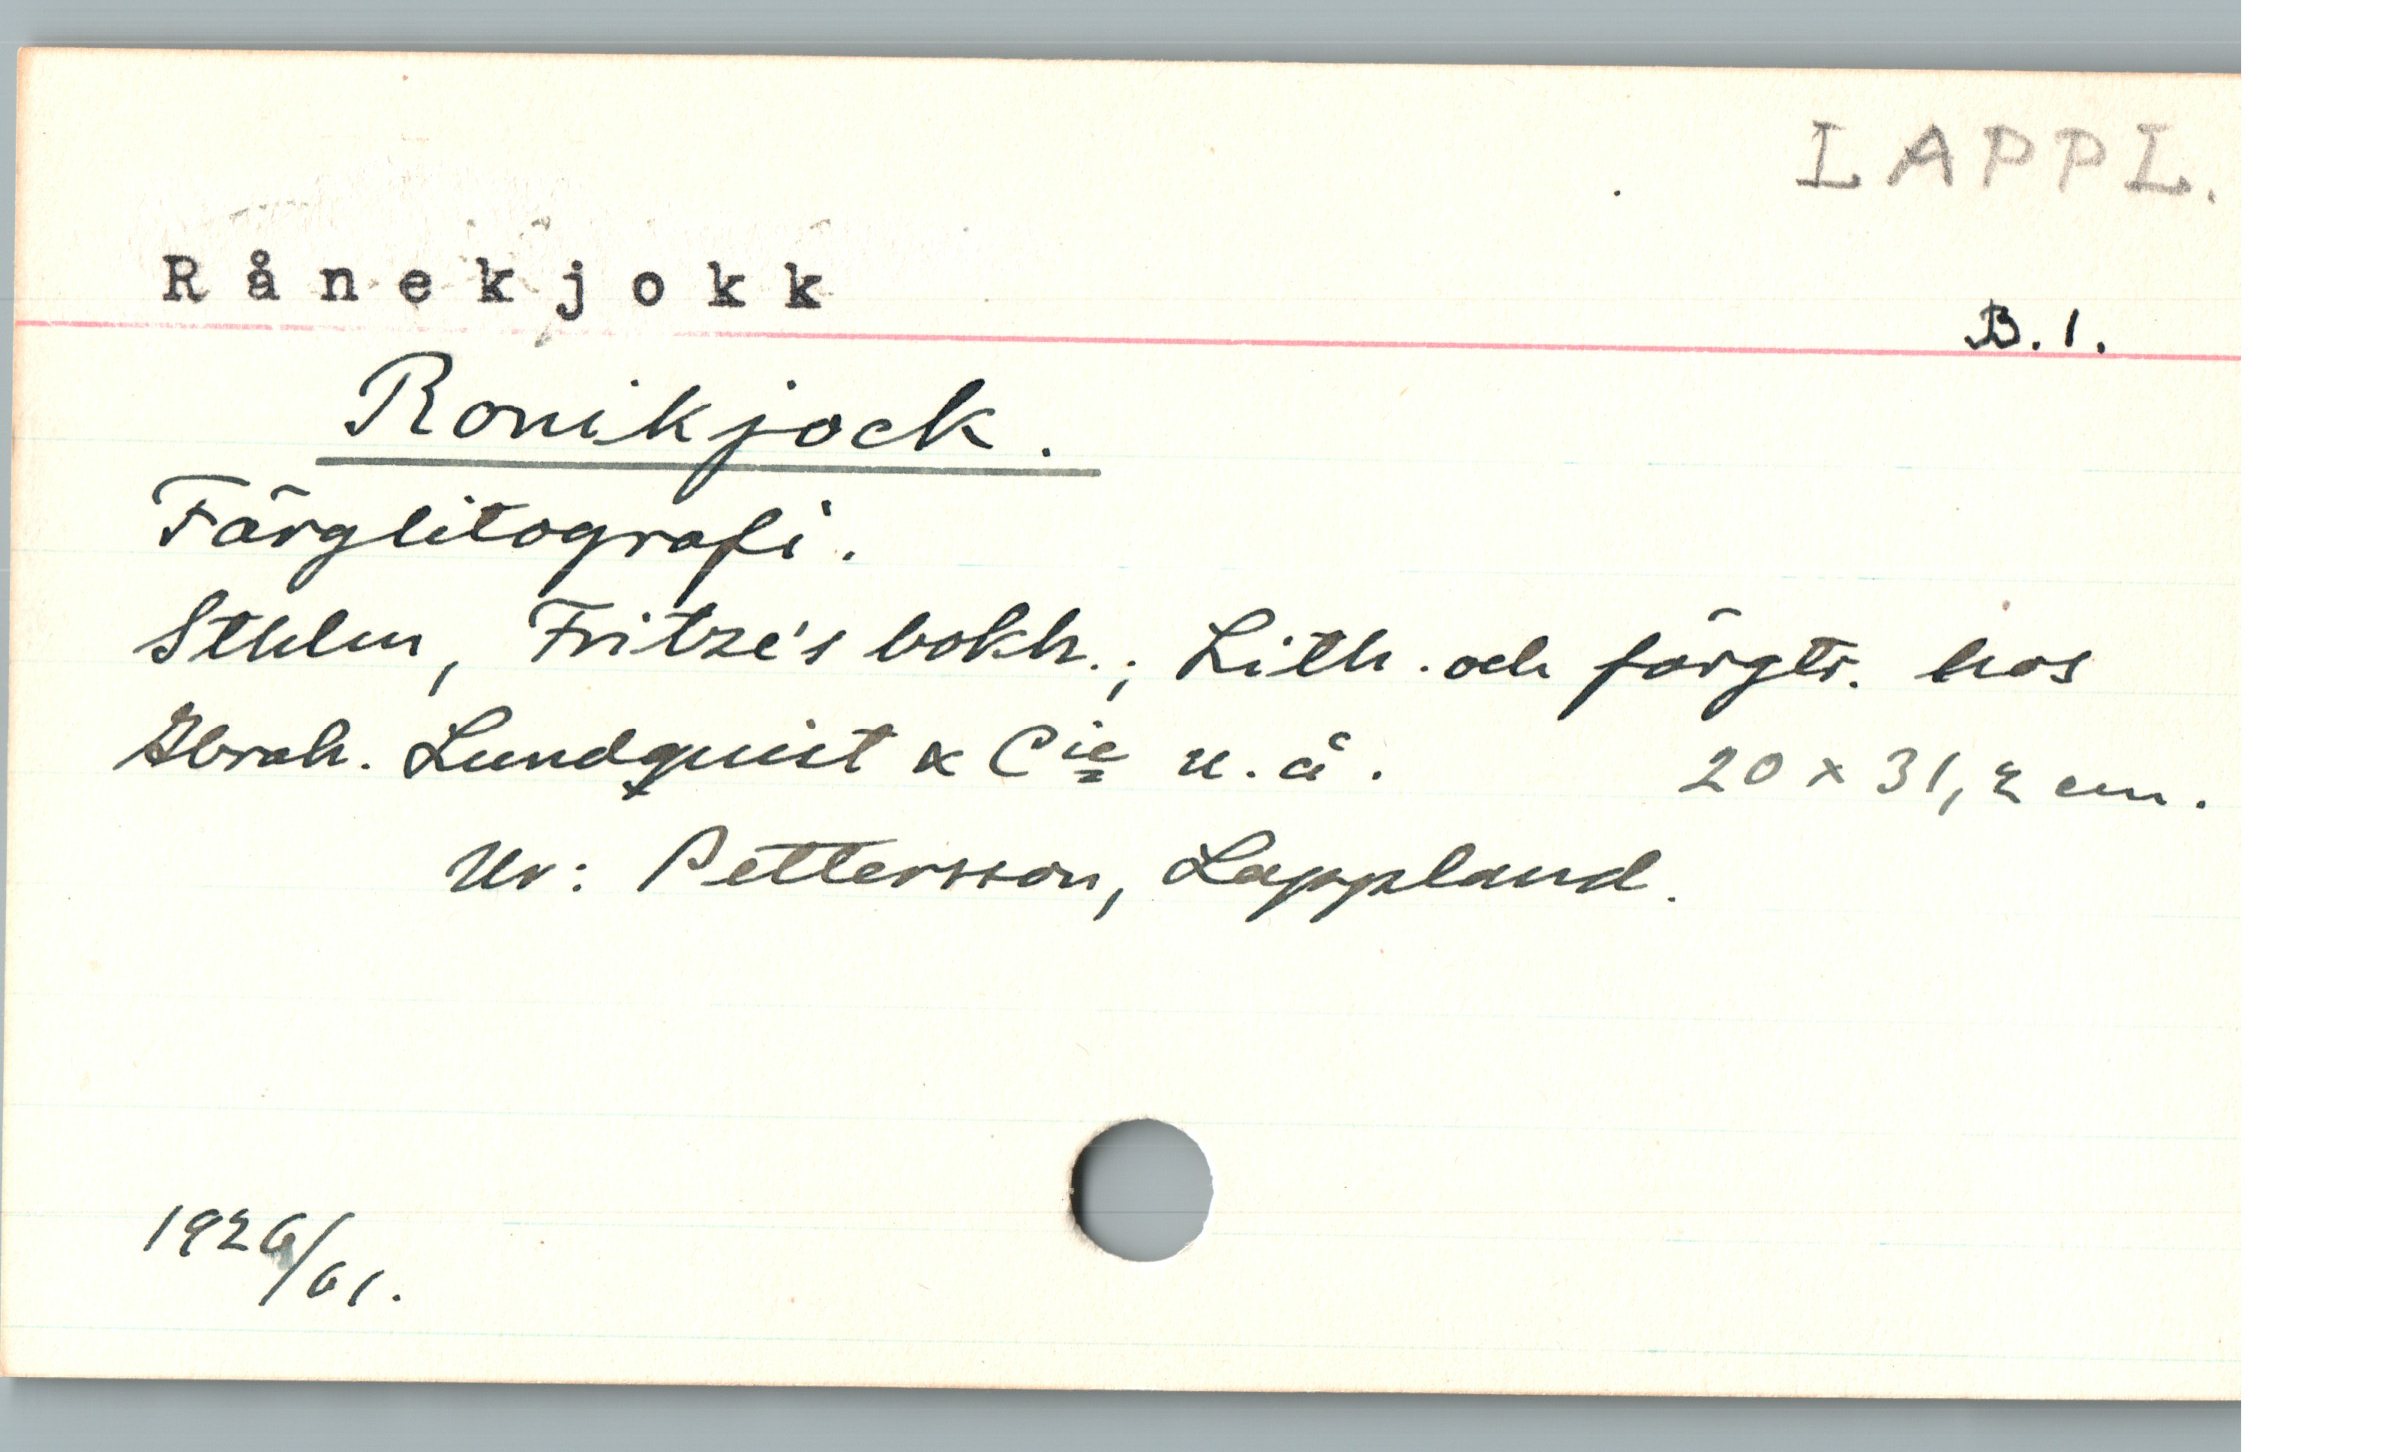 LAPPL.
Rånekjokk
B.1.
Ronikjock.
Färglitografi.
Sthlm, Fritze's bokh.; Lith. och färgtr. hos
Abrah. Lundquist & Cie u.å. 20 x 31,2 cm.
Ur: Pettersson, Lappland.
1926/61.